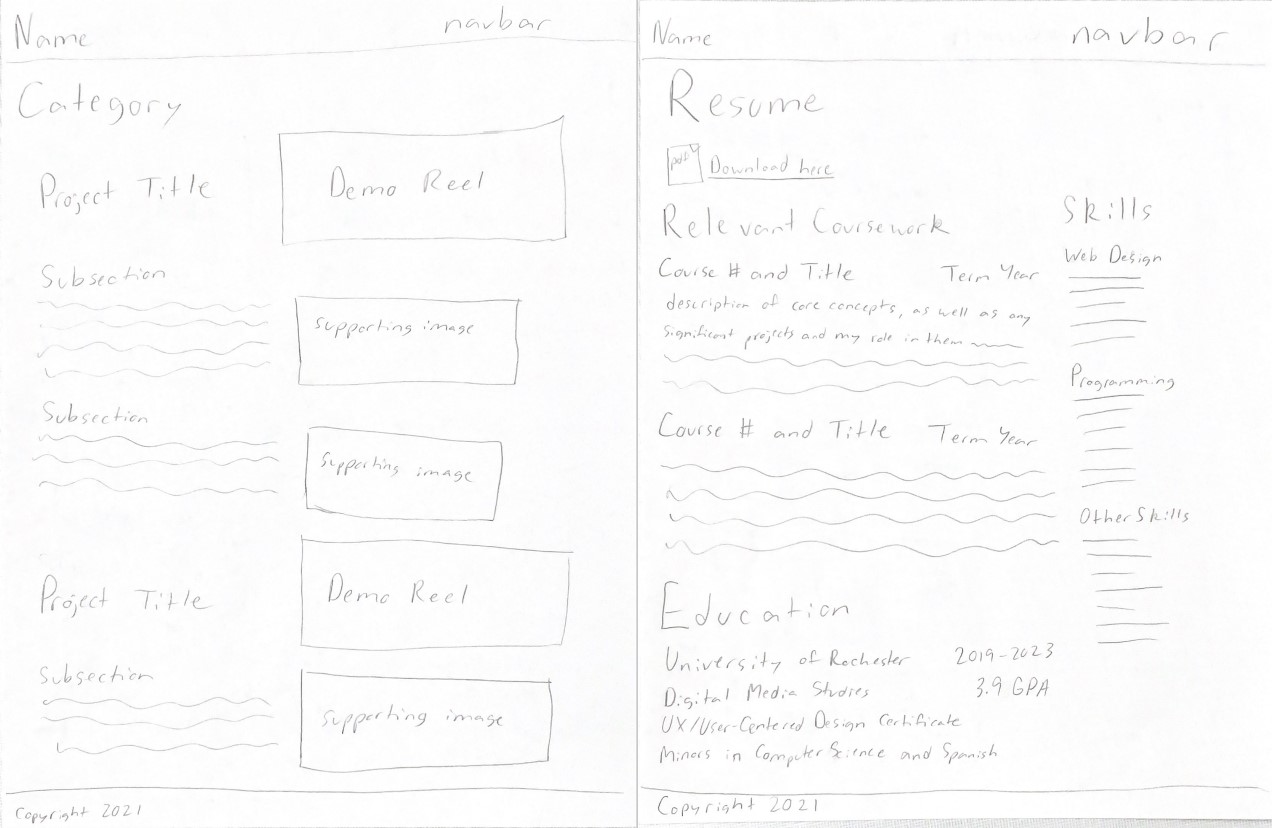 Name navbar
Category
Project Title
Demo Reel
Subsection
Supporting image
Subsection
Supporting image
Project Title
Demo Reel
Subsection
Supporting image
Copyright 2021
Name navbar
Resume
pdf Download here
Relevant Coursework
Course # and Title Term Year
description of core concepts, as well as any
significant projects and my role in them
Course # and Title Term Year
Skills
Web Design
Programming
Other Skills
Education
University of Rochester 2019-2023
Digital Media Studies 3.9 GPA
UX/User-Centered Design Certificate
Minors in Computer Science and Spanish
Copyright 2021